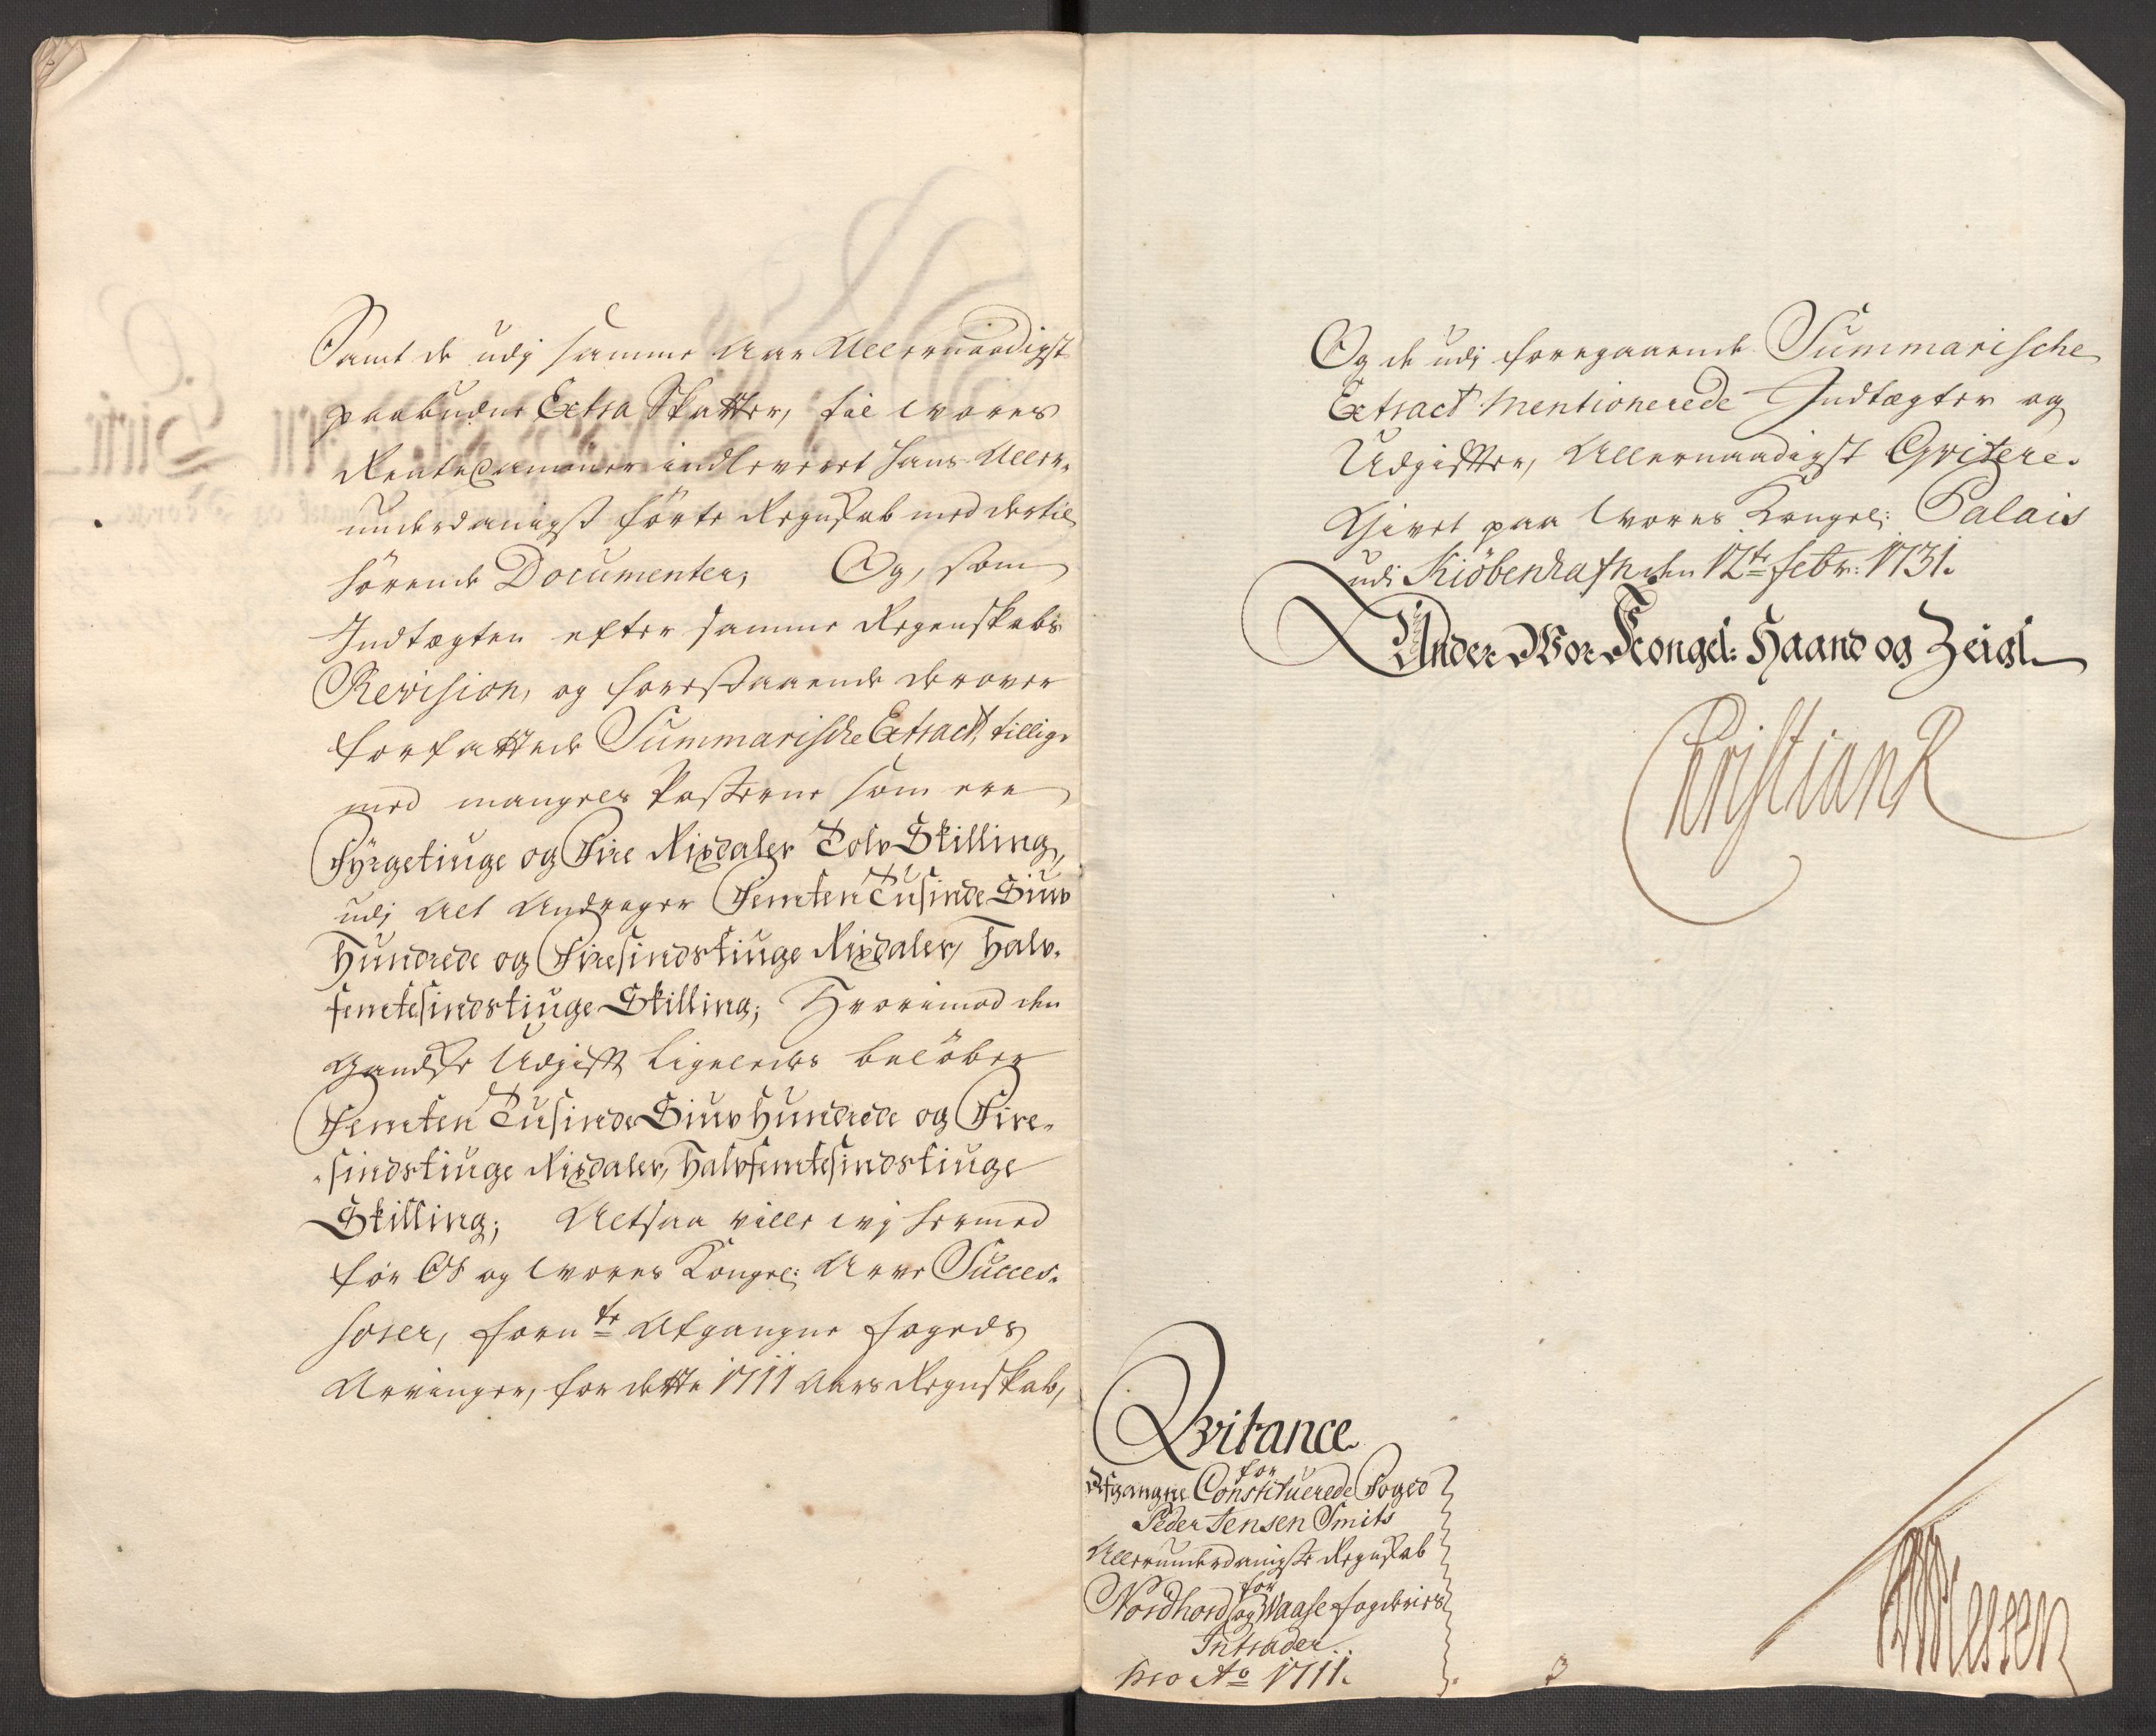 Samt de udj samme Aar Allernaadigst
paabudne Extra Skatter, til Wores
RenteCammer indleveret hans Aller-
underdanigst førte Regnskab med dertil
hørende Documenter; Og, som
Indtægten efter samme Regenskabs
Revision, og forestaaende derover
forfattede Summarische Extract, tillige
med mangels Posterne som ere
Fyrgetiuge og Fire Rixdaler Tolv Skilling,
udj Alt Andrager Femten Tusinde Siuv
Hundrede og Firesindstiuge Rixdaler, Halv-
femtesindstiuge Skilling; Hvorimod den
Gandske Udgift Ligeledes beløber
Femten Tusinde Siuv Hundrede og Fire-
sindstiuge Rixdaler, Halvfemtesindstiuge
Skilling; Altsaa ville Wj hermed
for Os og Wores Kongel: Arve Succes-
sorer, forn te Afgangne fogeds
Arvinger, for dette 1711 Aars Regnskab,
Og de udj foregaaende Summarische
Extract Mentionerede Indtægter og
Udgifter, Allernaadigst Qvitere.
Givet paa Wores Kongel: Palais
udi Kiøbenhafn den 12te Febr: 1731.
Under Wor Kongel: Haand og Zeigl
Christian R
Qvitance
for
Afgangne Constituerede Foged
Peder Jensen Smits
Allerunderdanigste Regnskab
for
Nordhord og Waase fogderies
Intrader
pro Ao 1711.